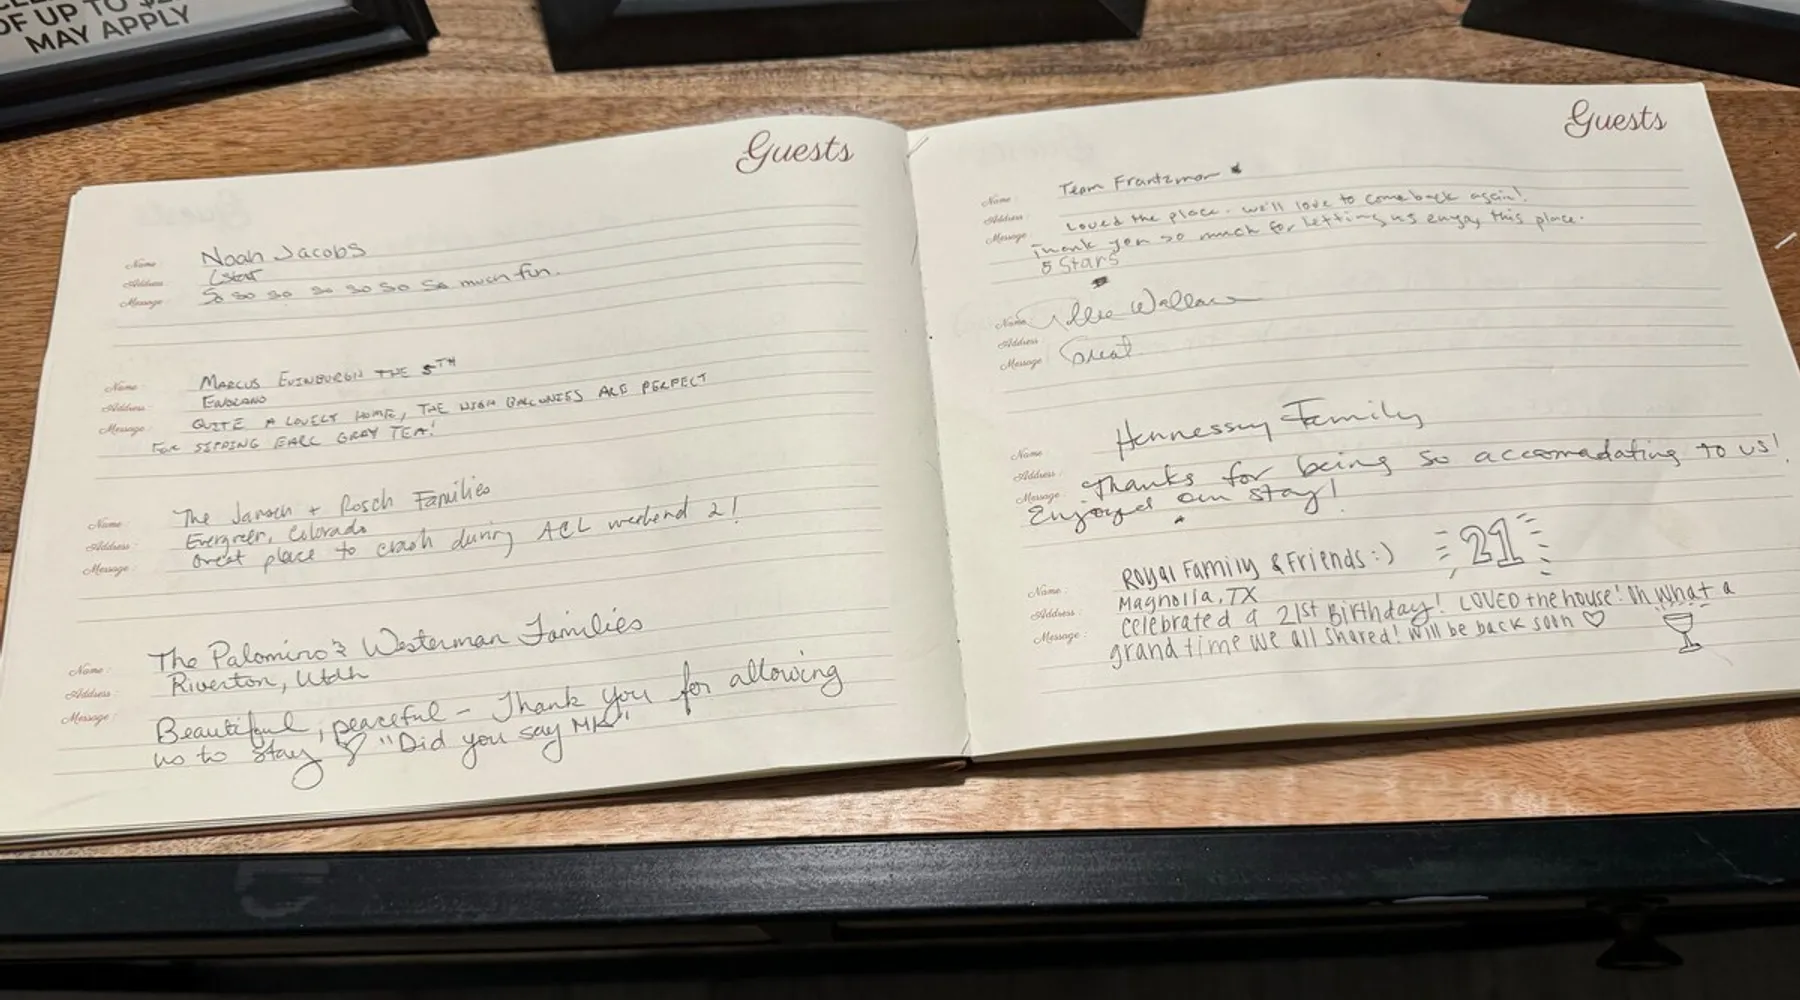 OF UP TO
MAY APPLY
Guests
Name: Noah Jacobs
Address:
Message: So so so so so so so much fun.
Name: MARCUS EDINBURGH THE 5TH
Address: ENGLAND
Message: QUITE A LOVELY HOME, THE HIGH BALCONIES ARE PERFECT
FOR SIPPING EARL GRAY TEA!
Name: The + Rosch Families
Address: Evergreen, Colorado
Message: Great place to crash during ACL weekend 2!
Name: The Palomino's & Westerman Families
Address: Riverton, Utah
Message: Beautiful, peaceful - Thank you for allowing
us to stay ♡ "Did you say"
Guests
Name: Team
Address: Loved the place. We'll love to come back again!
Message: Thank you so much for letting us enjoy this place.
5 Stars
Name: Wallace
Address:
Message: Great
Name: Hennessy Family
Address: Thanks for being so accomadating to us!
Message: Enjoyed our stay!
Name: Royal Family & Friends :) 21
Address: Magnolia, TX
Message: Celebrated a 21st Birthday! LOVED the house! Oh what a
grand time we all shared! Will be back soon ♡